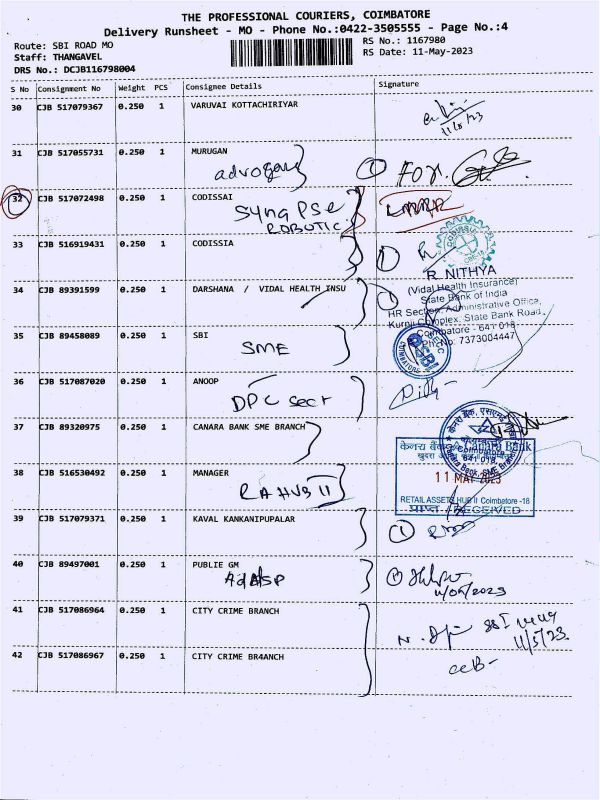 THE PROFESSIONAL COURIERS, COIMBATORE
Delivery Runsheet - MO - Phone No.:0422-3505555 - Page No.:4
Route: SBI ROAD MO
RS No.: 1167980
Staff: THANGAVEL
RS Date: 11-May-2023
DRS No.: DCJB116798004
S No Consignment No Weight PCS Consignee Details Signature
30 CJB 517079367 0.250 1 VARUVAI KOTTACHIRIYAR
11/5/23
31 CJB 517055731 0.250 1 MURUGAN
1 FOR.
32 CJB 517072498 0.250 1 CODISSAI
Synapse
ROBOTIC
33 CJB 516919431 0.250 1 CODISSIA
1
R. NITHYA
(Vidal Health Insurance)
34 CJB 89391599 0.250 1 DARSHANA / VIDAL HEALTH INSU
1
State Bank of India
HR Section, Administrative Office,
Kurnji Complex, State Bank Road,
Coimbatore - 641 018
Ph No: 7373004447
35 CJB 89458089 0.250 1 SBI
SME
36 CJB 517087020 0.250 1 ANOOP
DPC Sect
37 CJB 89320975 0.250 1 CANARA BANK SME BRANCH
Coimbatore
641 018
केनरा बैंक Canara Bank
38 CJB 516530492 0.250 1 MANAGER
RAHUB II
11 MAY 2023
RETAIL ASSETS HUB II Coimbatore -18
प्राप्त / RECEIVED
39 CJB 517079371 0.250 1 KAVAL KANKANIPUPALAR
1
40 CJB 89497001 0.250 1 PUBLIE GM
1
11/05/2023
41 CJB 517086964 0.250 1 CITY CRIME BRANCH
SSI
11/5/23
42 CJB 517086967 0.250 1 CITY CRIME BR4ANCH
CCB-